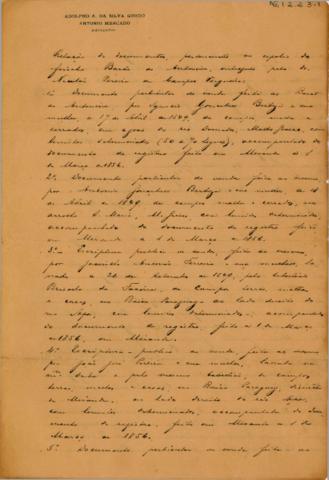 Nº 1 2 2 3-1
ADOLPHO A. DA SILVA GORDO
ANTONIO MERCADO
ADVOGADOS
Relação de documentos, pertencentes ao espolio do
finado Barão de Antonina, entregues pelo dr.
Nicolau Pereira de Campos Vergueiro
1º Documento particular de venda feita ao Barão
de Antonina por Ignacio Gonçalves Barbosa e sua
mulher, a 17 de Abril de 1849, de campos, mattos e
cerrados, em agoas do rio Dourado, Matto Grosso, com
limites determinados, acompanhado de
documento de registro feito em Miranda a 1
de Março de 1856.
2º Documento particular de venda feita ao mesmo,
por Antonio Gonçalves Barbosa e sua mulher, de
de Abril de 1849 de campos mattos e cerrados, em
S. Maria, M. Grosso com limites determinados,
acompanhado de documento de registro feito
em Miranda a 1 de Março de 1856.
3º Escriptura publica de venda, feita ao mesmo,
por Joaquim Ferreira e sua mulher, la-
vrada a 26 de Setembro de 1849, pelo tabellião
de campos terras, mattos
e casas, em Baixo Paraguay ao lado direito do
rio, com limites determinados, acompanhada
de documento de registro, feito a 1 de Março
de 1856, em Miranda.
4º Escriptura publica de venda, feita ao mesmo
por João José Pereira e sua mulher, lavrada na
mesma data e pelo mesmo tabellião, de campos,
terras, mattos e casas, em Baixo Paraguay, districto
de Miranda, ao lado direito do rio
com limites determinados, acompanhada de docu-
mento de registro, feito em Miranda a 1 de
Março de 1856.
5º Documento particular de venda feita ao